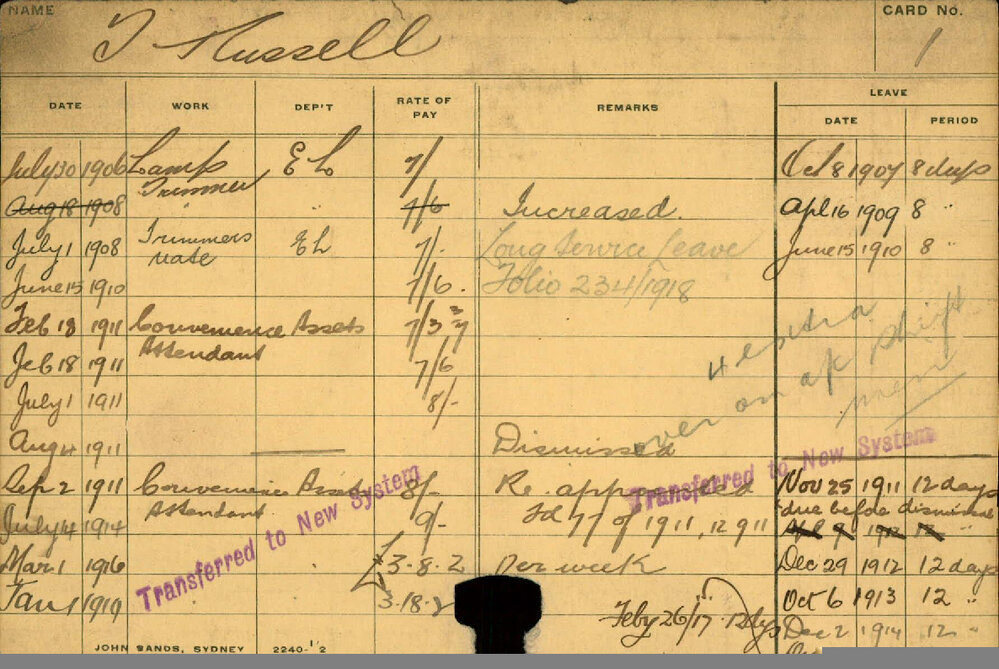 NAME CARD No.
T Russell 1
DATE WORK DEP'T RATE OF PAY REMARKS LEAVE
DATE PERIOD
July 30 1906 Lamp E L 7/ Oct 8 1907 8 days
Trimmer
Aug 18 1908 " 7/6 Increased. Apl 16 1909 8 "
July 1 1908 Trimmers E L 7/. Long Service Leave June 15 1910 8 "
rate
June 15 1910 7/6. Folio 234/1918
Feb 18 1911 Convenience Assets 7/3
Attendant
Feb 18 1911 7/6
4 extra
over on a/c shift
men
July 1 1911 8/-
Aug 4 1911 Dismissed
Transferred to New System
Sep 2 1911 Convenience Assets 8/- Re. appointed Nov 25 1911 12 days
Attendant due before dismissal
July 14 1914 9/- 1911, 12 9 11
Transferred to New System
Mar 1 1916 £3-8-2 Per week Dec 29 1912 12 days
Jan 1 1919 3-18-2 Oct 6 1913 12 "
Feby 26/17. 12 dys Dec 2 1914 12 "
JOHN SANDS, SYDNEY 2240-1/2